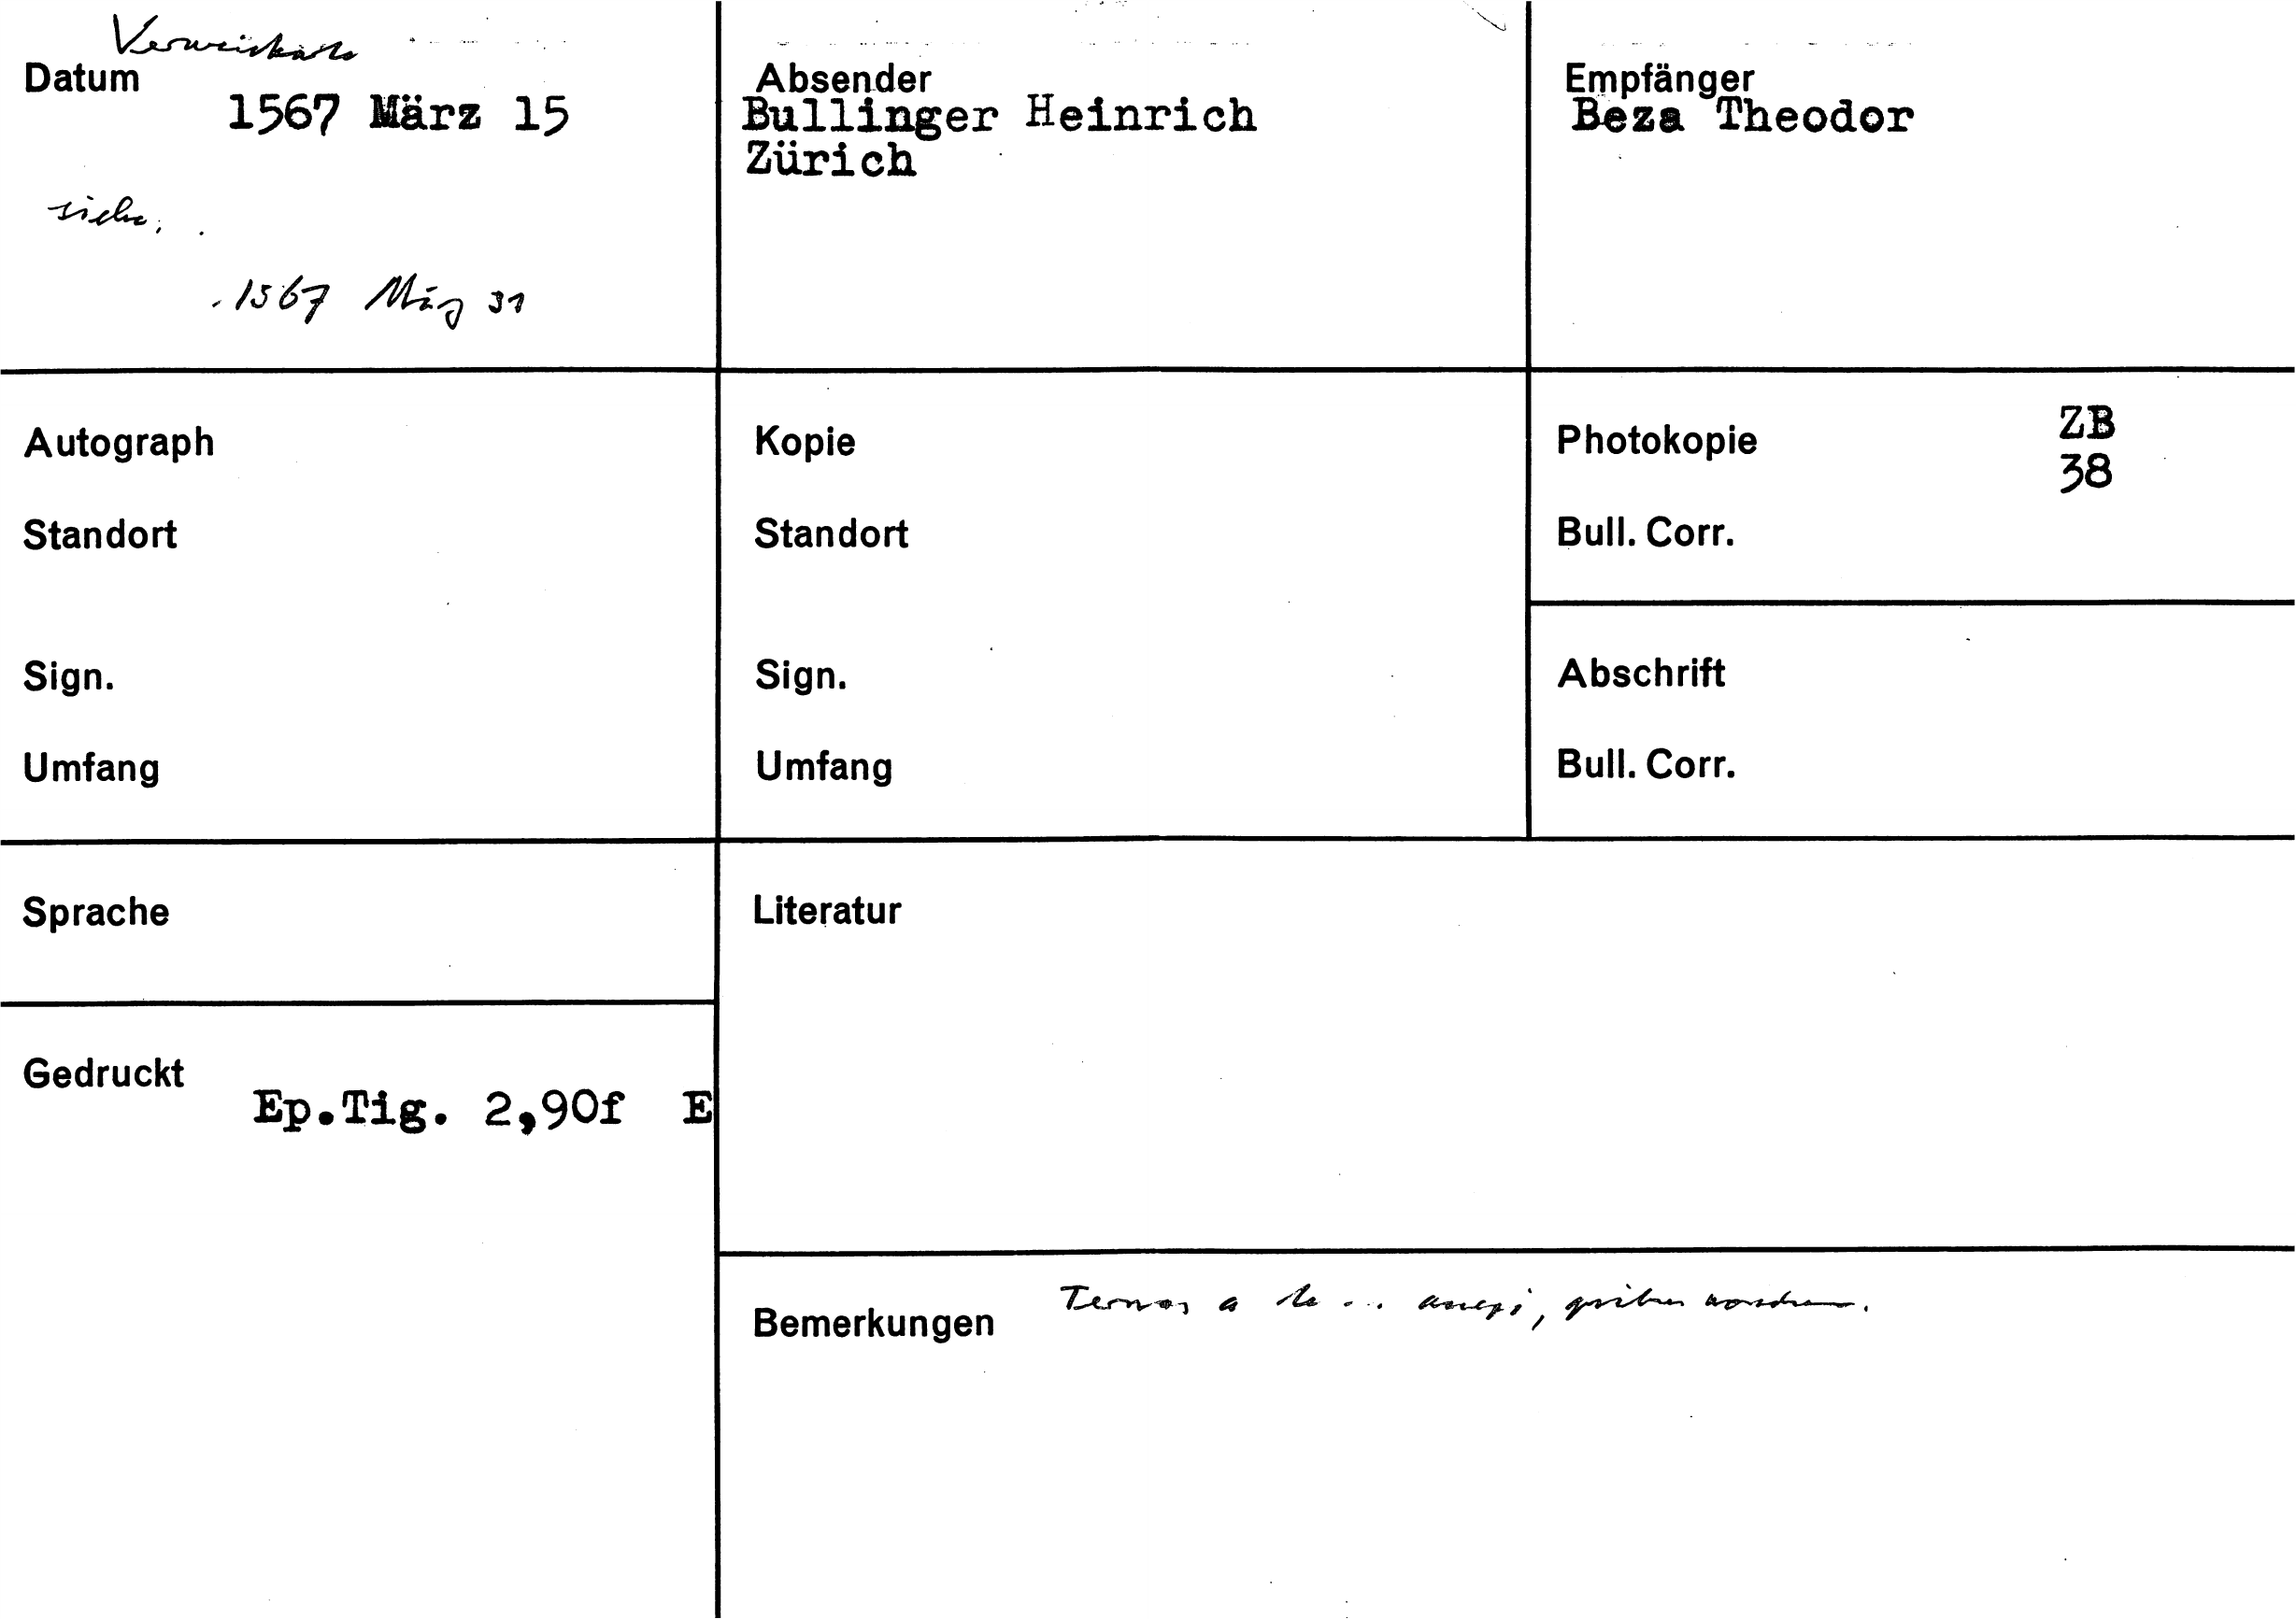 Verweiskarte
Datum
1567 März 15
siehe:
1567 März 31
Absender
Bullinger Heinrich
Zürich
Empfänger
Beza Theodor
Autograph
Standort
Sign.
Umfang
Kopie
Standort
Sign.
Umfang
Photokopie
ZB
38
Bull. Corr.
Abschrift
Bull. Corr.
Sprache
Literatur
Gedruckt
Ep.Tig. 2,90f E
Bemerkungen
Ternas a te ... accepi, quibus nondum.